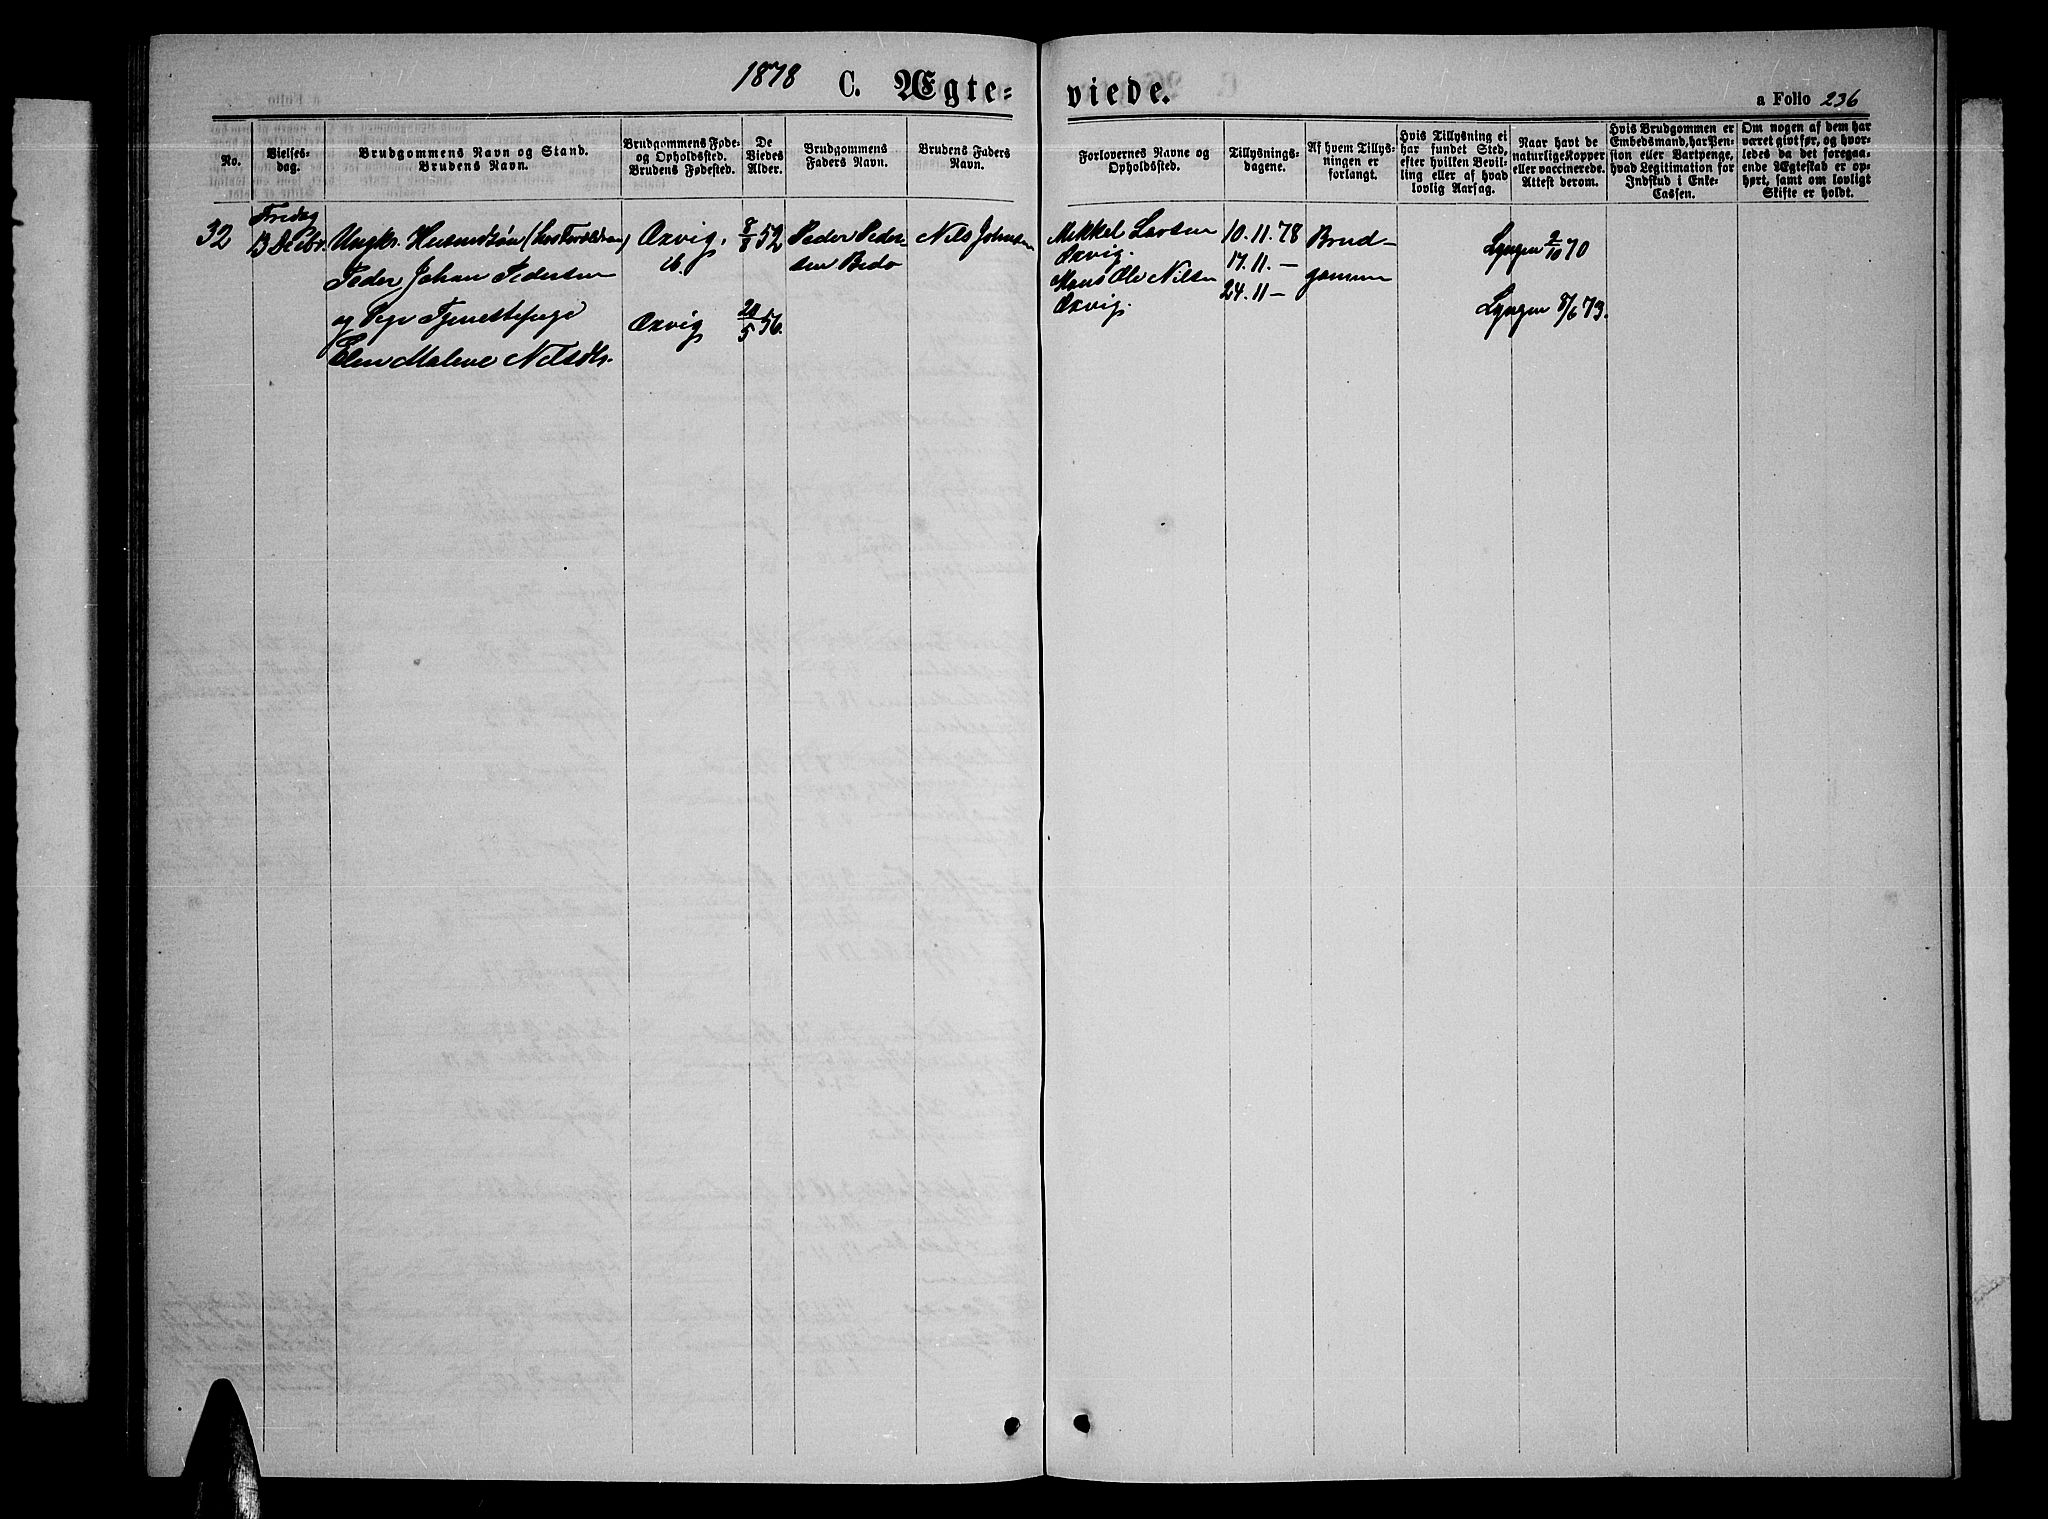 1878 C. Ægte-
viede.
a Folio 236
No.
Vielses-
dag.
Brudgommens Navn og Stand.
Brudens Navn.
Brudgommens Føde-
og Opholdssted.
Brudens Fødested.
De
Viedes
Alder.
Brudgommens
Faders Navn.
Brudens Faders
Navn.
Forlovernes Navne og
Opholdssted.
Tillysnings-
dagene.
Af hvem Tillys-
ningen er
forlangt.
Hvis Tillysning ei
har fundet Sted,
efter hvilken Bevil-
ling eller af hvad
lovlig Aarsag.
Naar havt de
naturlige Kopper
eller vaccinerede.
Attest derom.
Hvis Brudgommen er
Embedsmand, har Pen-
sion eller Vartpenge,
hvad Legitimation for
Indskud i Enke-
Cassen.
Om nogen af dem har
været givt før, og hvor-
ledes da det foregaa-
ende Ægtestad er op-
hørt, samt om lovligt
Skifte er holdt.
32
Fredag
13 Decbr.
Ungkr. Husmdsøn
Peder Johan Pedersen
og Pige Tjenestepige
Elen Malene Nilsdtr.
Oxvig.
ib.
Oxvig
8/8 52
20/5 56.
Peder Peder-
sen Bedo
Nils Johnsen
Mikkel Larsen
Oxvig.
Hans Ole Nilsen
Oxvig.
10.11.78
17.11.–
24.11–
Brud-
gommen
Lyngen 2/10 70
Lyngen 8/6 73.